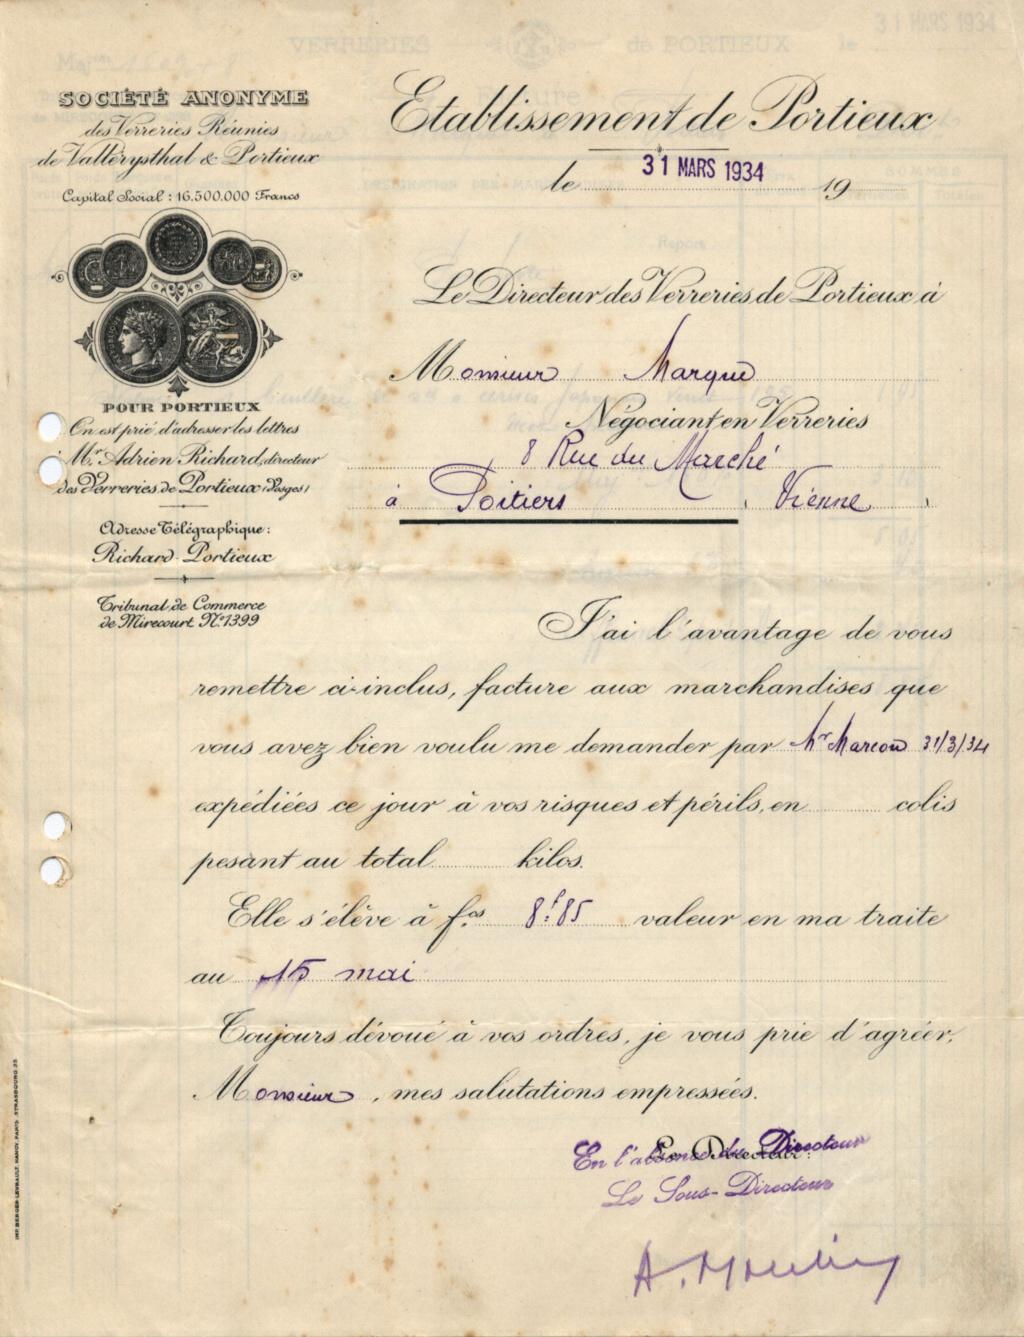 SOCIÉTÉ ANONYME
des Verreries Réunies
de Vallérysthal & Portieux
Capital Social : 16.500.000 Francs
POUR PORTIEUX
On est prié d'adresser les lettres
à Mr. Adrien Richard, directeur
des Verreries de Portieux (Vosges)
Adresse Télégraphique :
Richard-Portieux
Tribunal de Commerce
de Mirecourt No. 1399
VERRERIES de PORTIEUX le 31 MARS 1934
Etablissement de Portieux
le 31 MARS 1934 19
Le Directeur des Verreries de Portieux à
Monsieur Marque
Négociant en Verreries
8 Rue du Marché
à Poitiers, Vienne.
J'ai l'avantage de vous
remettre ci-inclus, facture aux marchandises que
vous avez bien voulu me demander par Mr Marcou 31/3/34
expédiées ce jour à vos risques et périls, en colis
pesant au total kilos.
Elle s'élève à fcs 8f.85 valeur en ma traite
au 15 mai
Toujours dévoué à vos ordres, je vous prie d'agréer,
Monsieur, mes salutations empressées.
Le Directeur:
En l'absence du Directeur
Le Sous-Directeur
IMP. BERGER-LEVRAULT, NANCY, PARIS, STRASBOURG